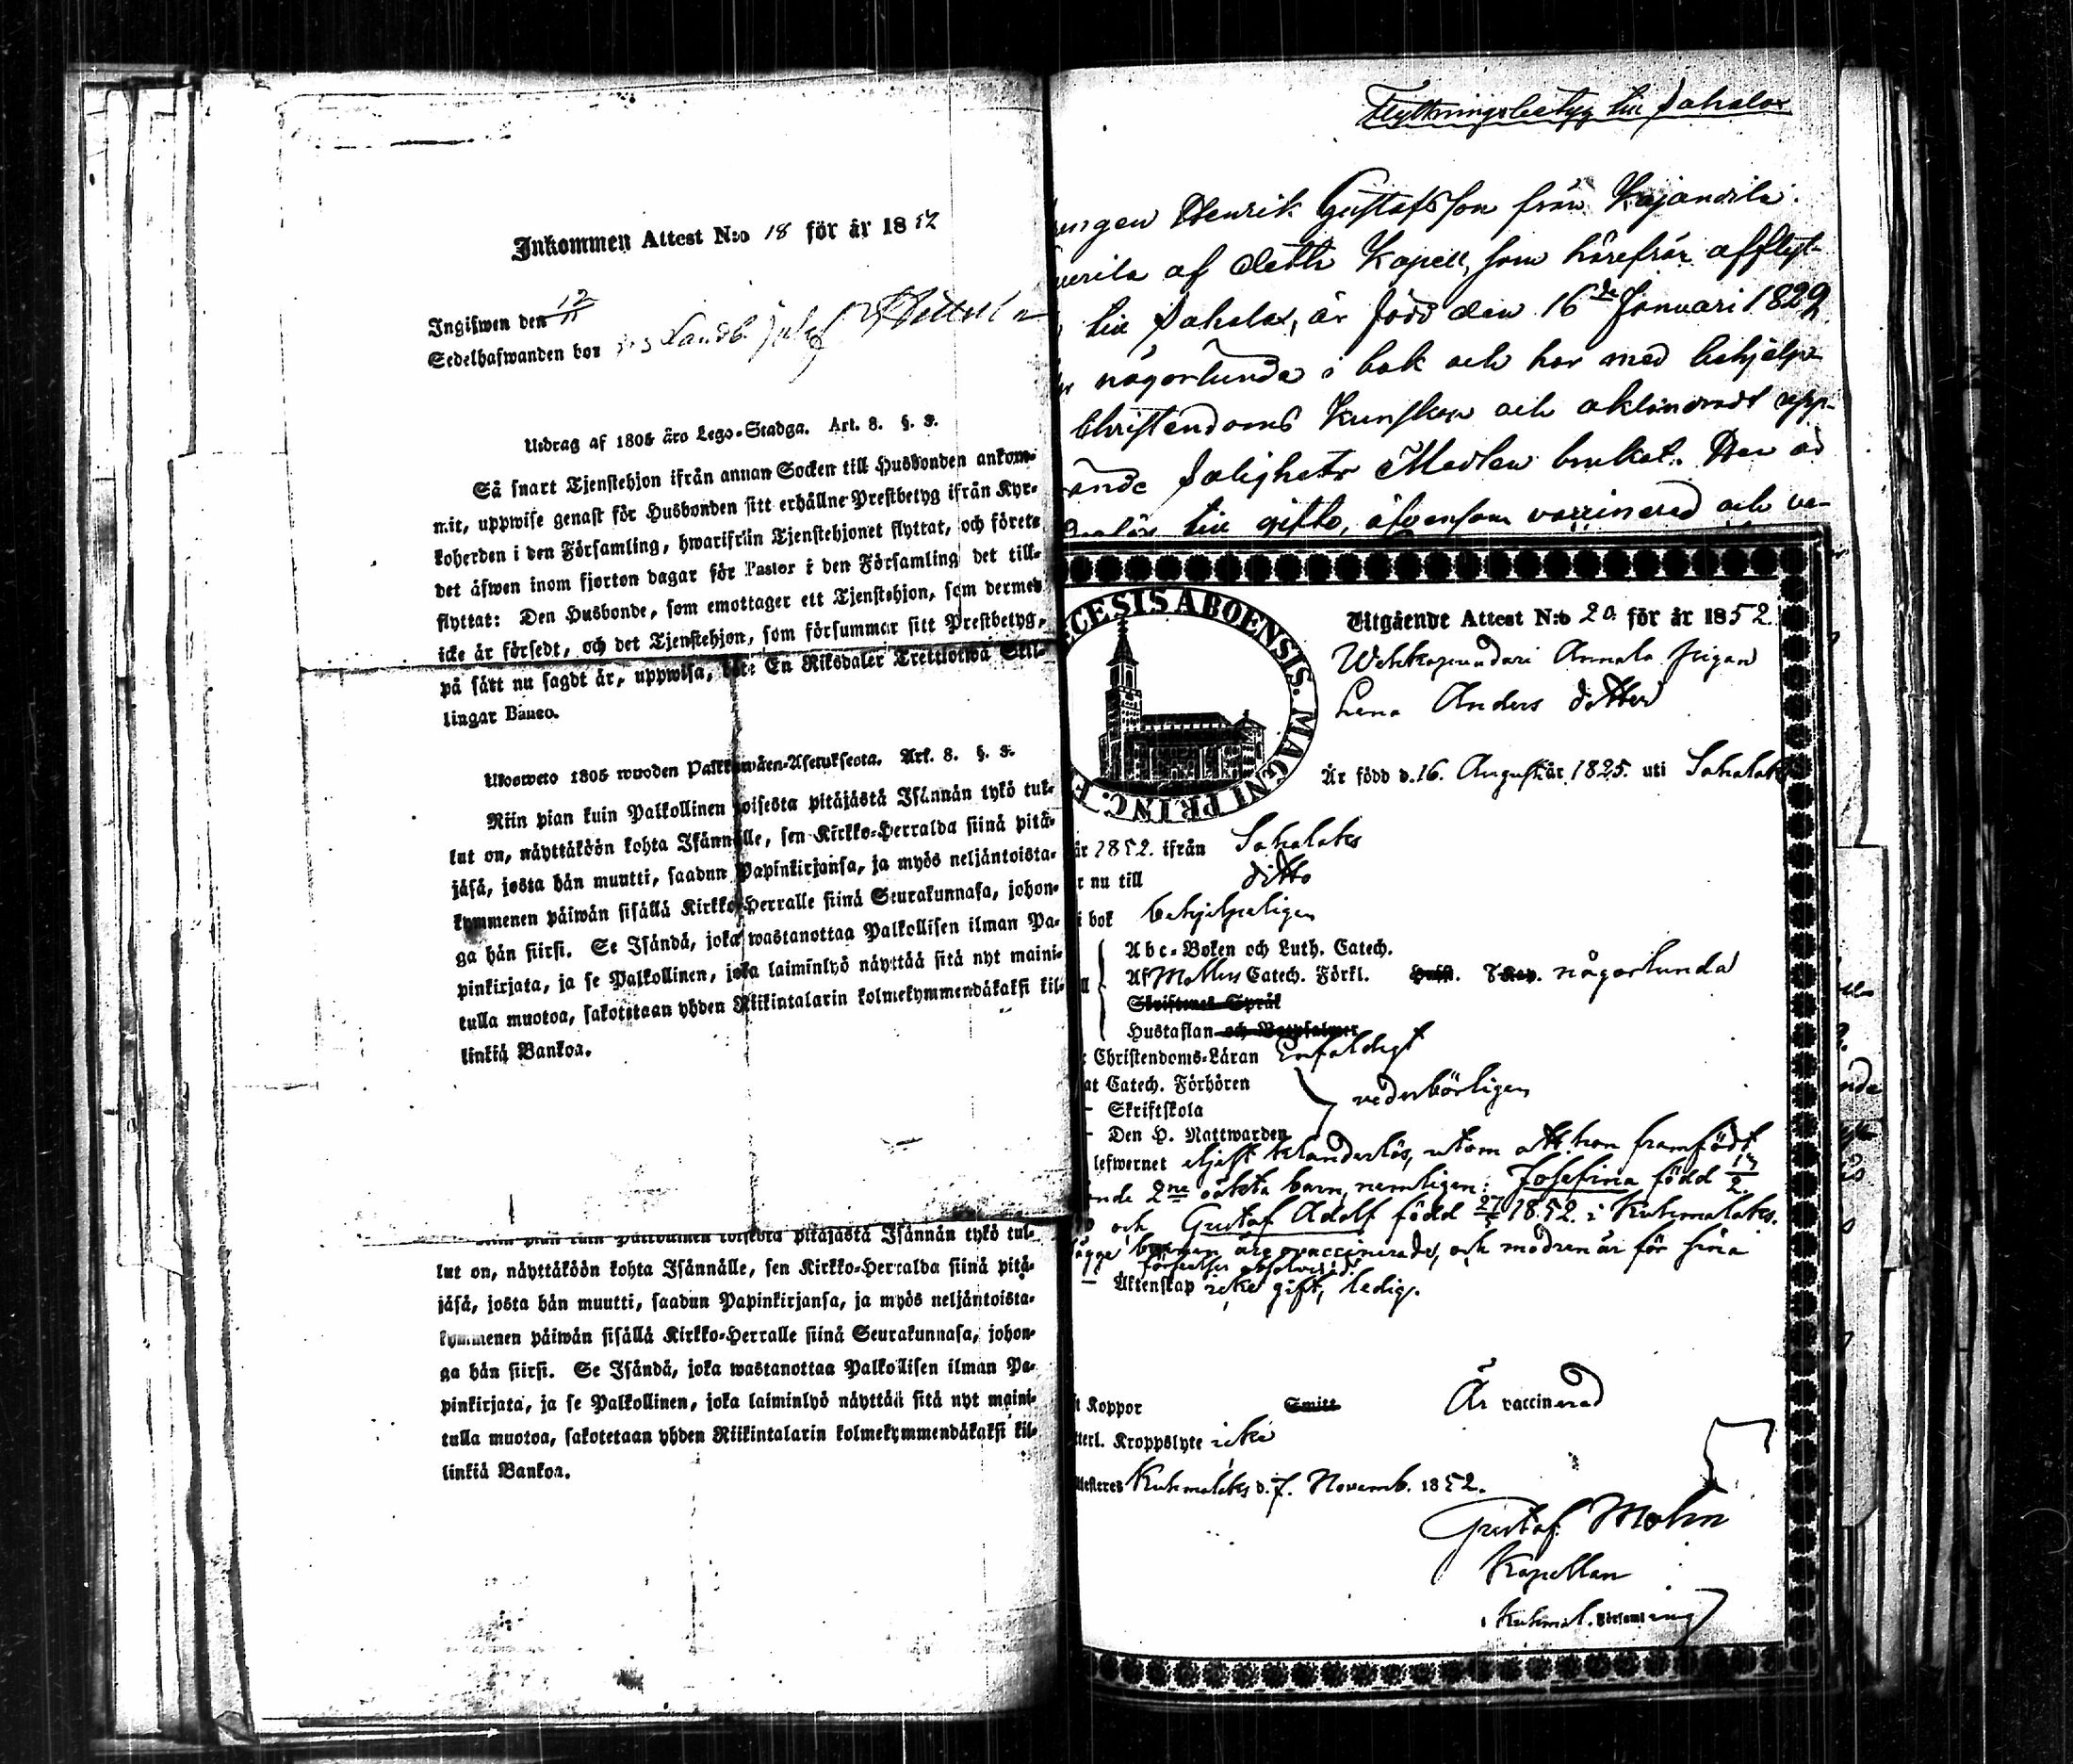 Inkommen Attest N:o 18 för år 1852
Ingifwen den 12/11
Sedelhafwanden bor
Utdrag af 1805 års Lego-Stadga. Art. 8. §. 8.
Så snart Tjenstehjon ifrån annan Socken till Husbonden ankom-
mit, uppwise genast för Husbonden sitt erhållne Prestbetyg ifrån Kyr-
koherden i den Församling, hwarifrån Tjenstehjonet flyttat, och förete
det äfwen inom fjorton dagar för Pastor i den Församling det till-
flyttat: Den Husbonde, som emottager ett Tjenstehjon, som dermed
icke är försedt, och det Tjenstehjon, som försummar sitt Prestbetyg,
på sätt nu sagdt är, uppwisa, böte En Riksdaler Trettiotwå Skil-
lingar Banco.
Ulosweto 1805 wuoden Palkkawäen-Asetuksesta. Art. 8. §. 8.
Niin pian kuin Palkollinen toisesta pitäjästä Isännän tykö tul-
lut on, näyttäköön kohta Isännälle, sen Kirkko-Herralda siinä pitä-
jäsä, josta hän muutti, saadun Papinkirjansa, ja myös neljäntoista-
kymmenen päiwän sisällä Kirkko-Herralle siinä Seurakunnasa, johon-
ga hän siirsi. Se Isändä, joka wastanottaa Palkollisen ilman Pa-
pinkirjata, ja se Palkollinen, joka laiminlyö näyttää sitä nyt maini-
tulla muotoa, sakotetaan yhden Riikintalarin kolmekymmendäkaksi kil-
linkiä Bankoa.
pitäjästä Isännän tykö tul-
lut on, näyttäköön kohta Isännälle, sen Kirkko-Herralda siinä pitä-
jäsä, josta hän muutti, saadun Papinkirjansa, ja myös neljäntoista-
kymmenen päiwän sisällä Kirkko-Herralle siinä Seurakunnasa, johon-
ga hän siirsi. Se Isändä, joka wastanottaa Palkollisen ilman Pa-
pinkirjata, ja se Palkollinen, joka laiminlyö näyttää sitä nyt maini-
tulla muotoa, sakotetaan yhden Riikintalarin kolmekymmendäkaksi kil-
linkiä Bankoa.
Flyttningsbetyg till Sahalax
Henrik Gustafsson från Kajandila
af detta Kapell, som härefrån afflyt-
till Sahalax, är född den 16de Januari 1829
någorlunda i bok och har med behjelp-
Christendoms Kunskap och oklandradt upp-
Salighets Medlen brukat. Han är
till gifte, äfvensom vaccinerad och
ECESIS ABOENSIS. MAGNI PRINC. F
Utgående Attest N:o 20 för år 1852.
Wehkapundari Annala pigan
Lena Andersdotter
Är född d. 16. August år 1825. uti Sahalaks
år 1852. ifrån Sahalaks
r nu till ditto
i bok behjelpeligen
Abc-Boken och Luth. Catech.
Af Möllers Catech. Förkl. någorlunda
Skriftenes Språk
Hustaflan och Botpsalmer
Christendoms-Läran Enfaldigt
at Catech. Förhören
Skriftskola vederbörligen
Den H. Nattwarden
lefwernet eljest klanderlös, utom att hon framfödt
2ne oäkta barn, nemligen: Josefina född
och Gustaf Adolf född 1852. i Kuhmalaks.
barnen äro ovaccinerade, och modren är för sina
förseelser absolverad.
Äktenskap icke gift, ledig.
t Koppor Smitt Är vaccinerad
tterl. Kroppslyte icke
ttesteres Kuhmalaks d. 7. Novemb. 1852.
Gustaf Molin
Kapellan
i Kuhmal. Församling